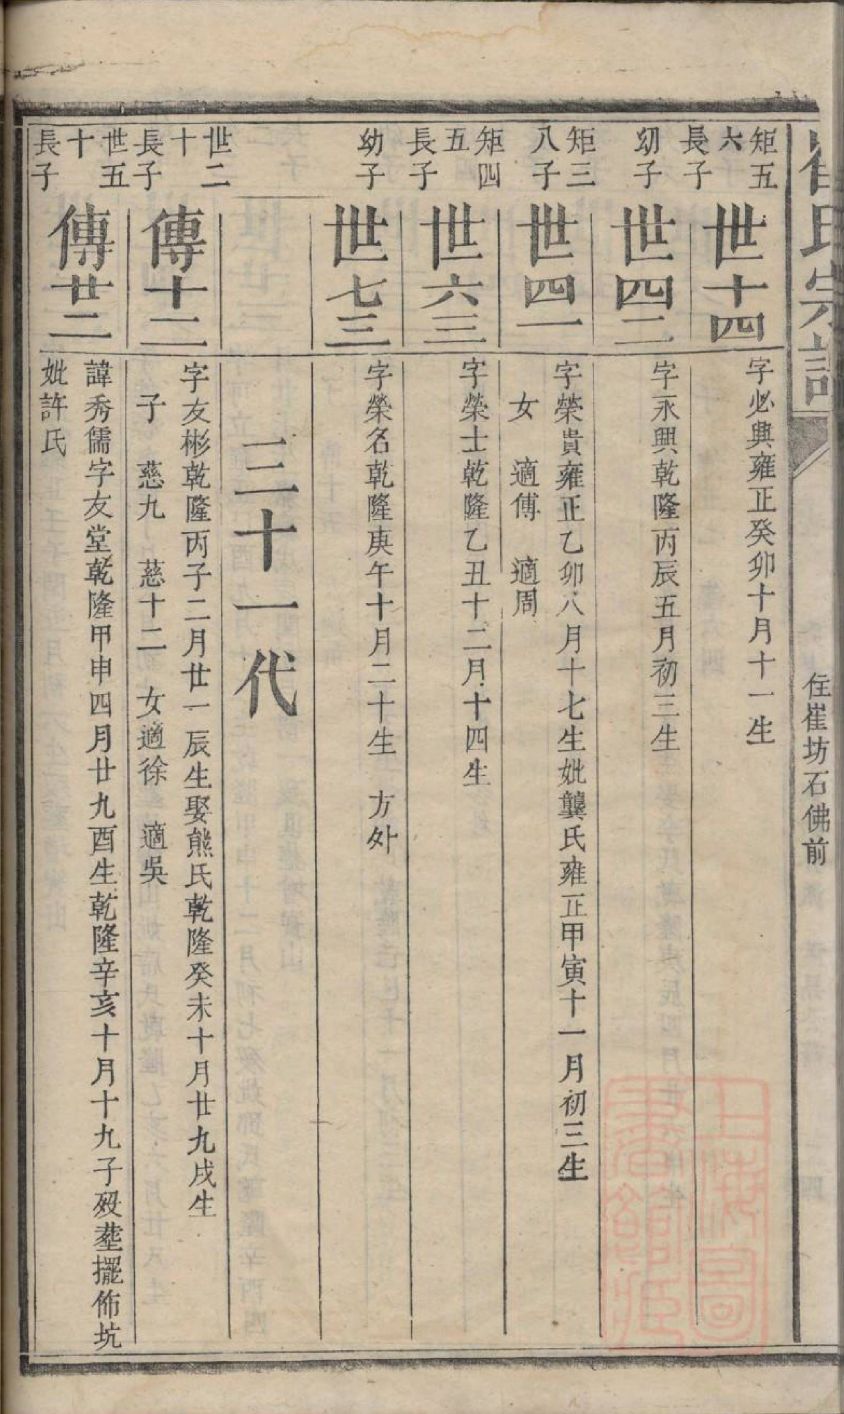 崔氏宗譜
住崔坊石佛前
矩五
六
長子
世十四
字必興雍正癸卯十月十一生
幼子
世四二
字永興乾隆丙辰五月初三生
矩三
八子
世四一
字榮貴雍正乙卯八月十七生妣龔氏雍正甲寅十一月初三生
女　適傅　適周
矩四
五
長子
世六三
字榮士乾隆乙丑十二月十四生
幼子
世七三
字榮名乾隆庚午十月二十生　方外
三十一代
世二
十
長子
傳十二
字友彬乾隆丙子二月廿一辰生娶熊氏乾隆癸未十月廿九戌生
子　慈九　慈十二　女適徐　適吳
世五
十
長子
傳廿二
諱秀儒字友堂乾隆甲申四月廿九酉生乾隆辛亥十月十九子歿塟擺佈坑
妣許氏